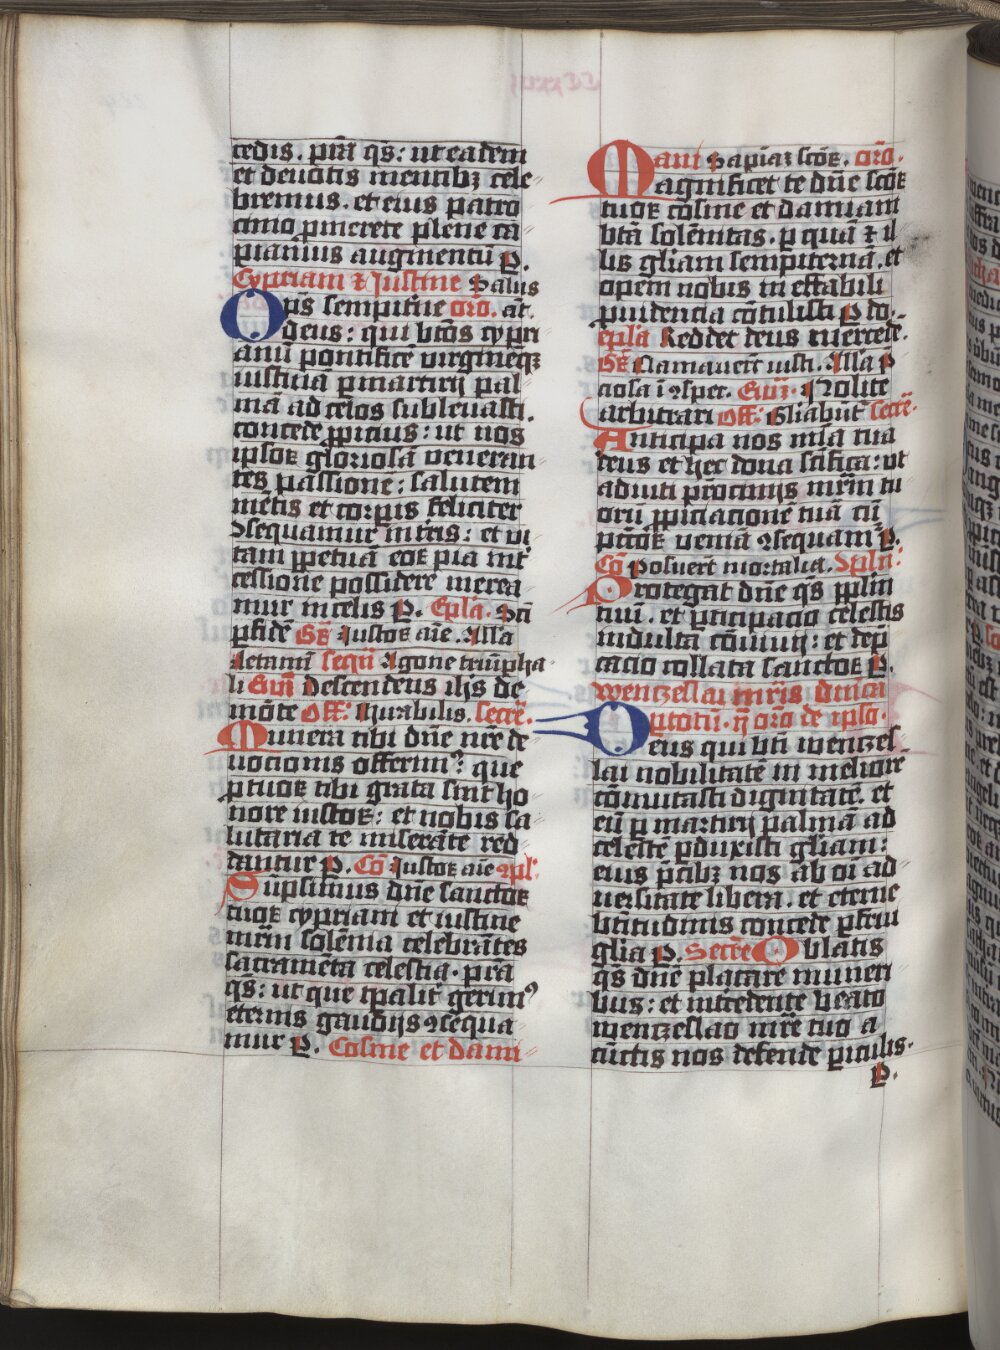 cedis. pr̄a qs̄: ut eadem
et deuotis mentibꝫ cele
bremus. et eius patro
cinio ꝓmereri plene ca
piamus augmentū P.
Cypriani ⁊ Justine Salus
Ops̄ sempit̄ne orō. at̄.
deus: qui btōs cypri
anū pontificē virgineqꝫ
iustinā ꝑ martirij pal
mā ad celos subleuasti.
concede ꝓpicius: ut nos
ipsoꝝ gloriosā veneran
tes passionē: salutem
mētis et corꝑis feliciter
ꝯsequamur meritis: et vi
tam ꝑpetuā eoꝝ pia int̄
cessione possidere merea
mur in celis P. Epl̄a. Scī
ꝑ fidē Gr̄ Justoꝝ aīe. Alla
Letamī sequē Agone triūpha
li Euḡ Descendens ihs̄ de
mōte Off: Mirabilis. secrē.
Munera tibi dn̄e nr̄e de
uocionis offerimꝰ: que
ꝑ tuoꝝ tibi grata sint ho
nore iustoꝝ: et nobis sa
lutaria te miserāte red
dantur P. Cō Justoꝝ aīe ꝯpl̄:
Sūpsimus dn̄e sanctoꝝ
tuoꝝ cypriani et iustine
mr̄m solēnia celebrātes
sacramēta celestia. pr̄a
qs̄: ut que tp̄alit̄ gerimꝰ
eternis gaudijs ꝯsequa
mur P. Cosme et dami
ani Sapiāꝫ scōꝝ. orō.
Magnificet te dn̄e scōꝝ
tuoꝝ cosme et damiani
btā solēnitas. ꝑ quā ⁊ il
lis gl̄iam sempiternā. et
opem nobis ineffabili
ꝓuidencia cōtulisti P do.
epl̄a Reddet deus mercedē.
Gr̄ Clamauerūt iusti. Alla P̄
ciosa ī ꝯspec. Euḡ. Nolite
arbitrari Off: Gl̄iabūt̄ secrē.
Anticipa nos mīa tua
deus et hec dona sc̄ifica: ut
adiuti p̄conijs mr̄m tu
orū ꝓpiciacionē tuā cū
pcc̄oꝝ veniā ꝯsequam̄ P.
Cō Posuert̄ mortalia. ꝯpl̄n:
Protegat dn̄e qs̄ ppl̄m
tuū. et ꝑticipacio celestis
indulta cōuiuij: et dep̄
cacio collata sanctoꝝ P.
wenczeslai mr̄is dūica
ꝑ totū. ꝫ orō de ipso.
Deus qui btī wenczes
lai nobilitatē in meliorē
cōmutasti dignitatē. et
eū ꝑ martirij palmā ad
celestē ꝑduxisti gl̄iam:
eius p̄cibꝫ nos ab oī ad
uersitate libera. et eterne
btītudinis concede ꝑfrui
gl̄ia P. Secrē Oblatis
qs̄ dn̄e placare muneri
bus: et intercedente beato
wenczeslao mr̄e tuo a
cūctis nos defende ꝑiculis.
P.